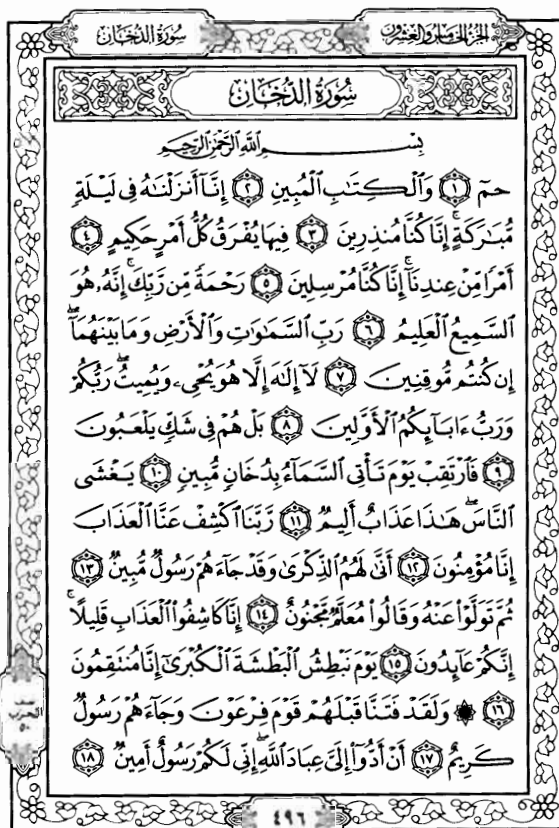 الجزء الخامس والعشرون
سورة الدخان
سُورَةُ الدُّخَانِ
بِسْمِ اللَّهِ الرَّحْمَٰنِ الرَّحِيمِ
حمٓ ۝١ وَٱلْكِتَٰبِ ٱلْمُبِينِ ۝٢ إِنَّآ أَنزَلْنَٰهُ فِى لَيْلَةٍ
مُّبَٰرَكَةٍ ۚ إِنَّا كُنَّا مُنذِرِينَ ۝٣ فِيهَا يُفْرَقُ كُلُّ أَمْرٍ حَكِيمٍ ۝٤
أَمْرًا مِّنْ عِندِنَآ ۚ إِنَّا كُنَّا مُرْسِلِينَ ۝٥ رَحْمَةً مِّن رَّبِّكَ ۚ إِنَّهُۥ هُوَ
ٱلسَّمِيعُ ٱلْعَلِيمُ ۝٦ رَبِّ ٱلسَّمَٰوَٰتِ وَٱلْأَرْضِ وَمَا بَيْنَهُمَآ ۖ
إِن كُنتُم مُّوقِنِينَ ۝٧ لَآ إِلَٰهَ إِلَّا هُوَ يُحْىِۦ وَيُمِيتُ ۖ رَبُّكُمْ
وَرَبُّ ءَابَآئِكُمُ ٱلْأَوَّلِينَ ۝٨ بَلْ هُمْ فِى شَكٍّ يَلْعَبُونَ
۝٩ فَٱرْتَقِبْ يَوْمَ تَأْتِى ٱلسَّمَآءُ بِدُخَانٍ مُّبِينٍ ۝١٠ يَغْشَى
ٱلنَّاسَ ۖ هَٰذَا عَذَابٌ أَلِيمٌ ۝١١ رَّبَّنَا ٱكْشِفْ عَنَّا ٱلْعَذَابَ
إِنَّا مُؤْمِنُونَ ۝١٢ أَنَّىٰ لَهُمُ ٱلذِّكْرَىٰ وَقَدْ جَآءَهُمْ رَسُولٌ مُّبِينٌ ۝١٣
ثُمَّ تَوَلَّوْا۟ عَنْهُ وَقَالُوا۟ مُعَلَّمٌ مَّجْنُونٌ ۝١٤ إِنَّا كَاشِفُوا۟ ٱلْعَذَابِ قَلِيلًا ۚ
إِنَّكُمْ عَآئِدُونَ ۝١٥ يَوْمَ نَبْطِشُ ٱلْبَطْشَةَ ٱلْكُبْرَىٰٓ إِنَّا مُنتَقِمُونَ
۝١٦ ۞ وَلَقَدْ فَتَنَّا قَبْلَهُمْ قَوْمَ فِرْعَوْنَ وَجَآءَهُمْ رَسُولٌ
كَرِيمٌ ۝١٧ أَنْ أَدُّوٓا۟ إِلَىَّ عِبَادَ ٱللَّهِ ۖ إِنِّى لَكُمْ رَسُولٌ أَمِينٌ ۝١٨
نصف
الحزب
٥٠
٤٩٦